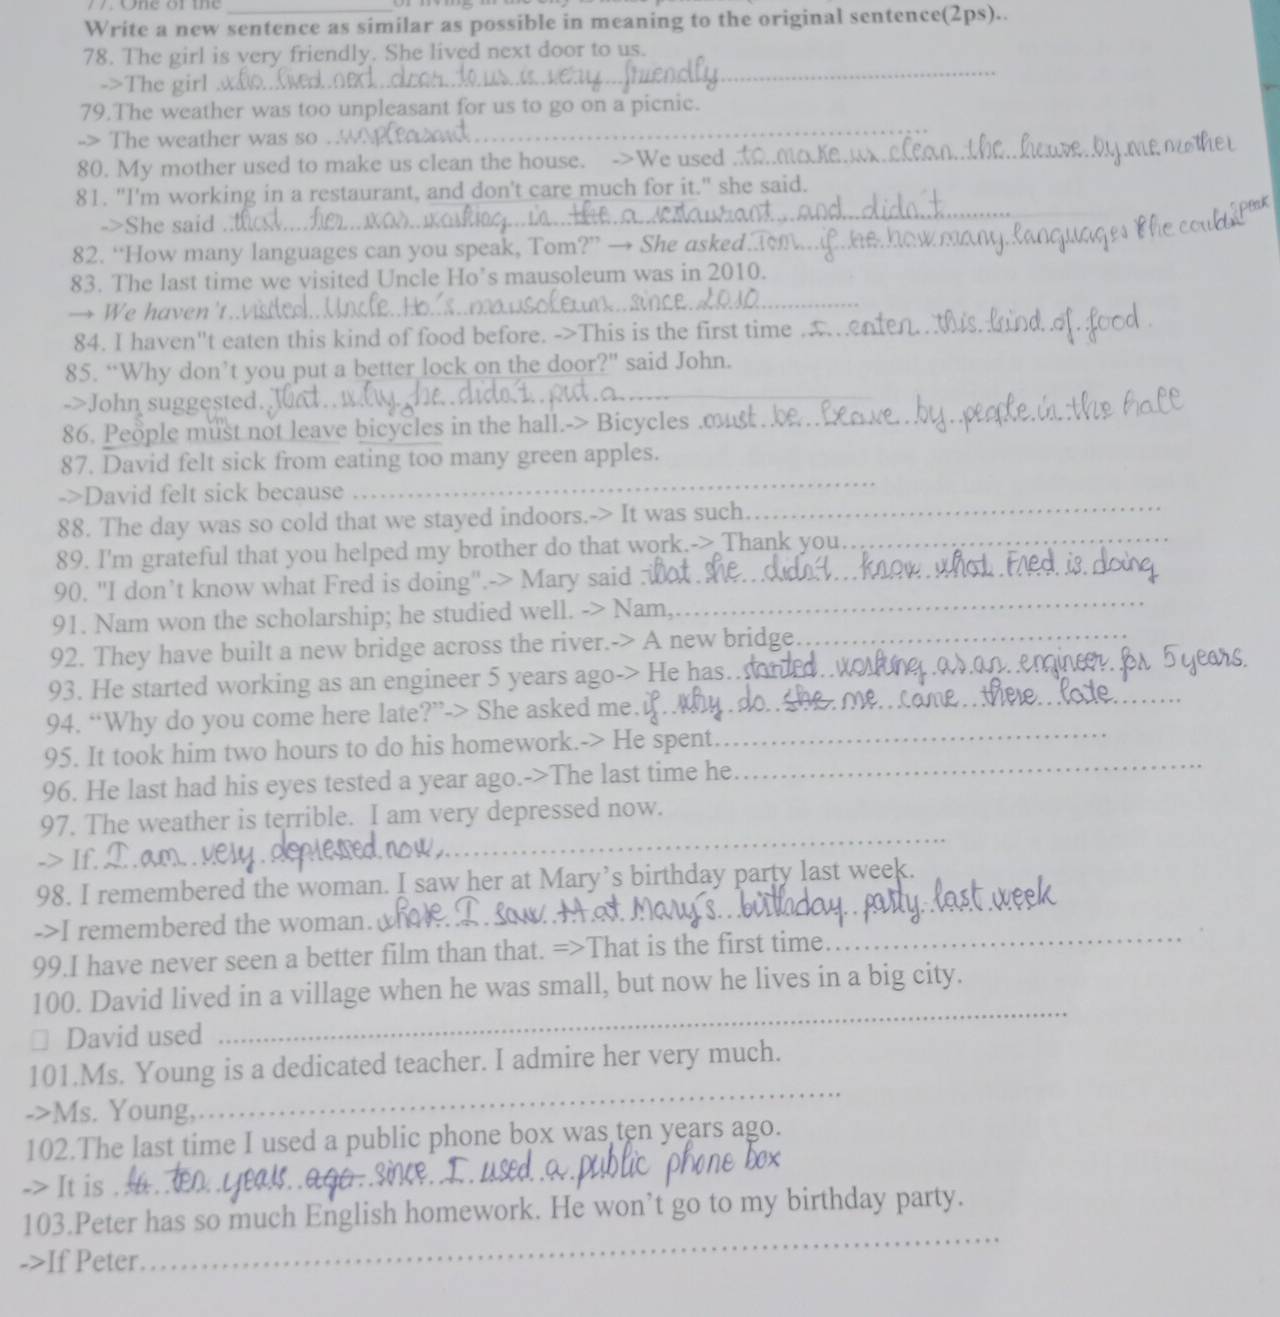 77. One of the
Write a new sentence as similar as possible in meaning to the original sentence(2ps)..
78. The girl is very friendly. She lived next door to us.
->The girl who lived next door to us is very friendly
79.The weather was too unpleasant for us to go on a picnic.
-> The weather was so unpleasant
80. My mother used to make us clean the house. ->We used to make us clean the house by me mother
81. "I'm working in a restaurant, and don't care much for it." she said.
->She said that her was working in the a restaurant, and didn't
82. “How many languages can you speak, Tom?” → She asked Tom if he how many languages the could speak
83. The last time we visited Uncle Ho’s mausoleum was in 2010.
→ We haven't visited Uncle Ho's mausoleum since 2010
84. I haven"t eaten this kind of food before. ->This is the first time I enten this kind of food
85. “Why don’t you put a better lock on the door?" said John.
->John suggested. that why he didn't put a
86. People must not leave bicycles in the hall.-> Bicycles must be leave by people in the hall
87. David felt sick from eating too many green apples.
->David felt sick because
88. The day was so cold that we stayed indoors.-> It was such
89. I'm grateful that you helped my brother do that work.-> Thank you
90. "I don’t know what Fred is doing".-> Mary said that she didn't know what Fred is doing
91. Nam won the scholarship; he studied well. -> Nam,
92. They have built a new bridge across the river.-> A new bridge
93. He started working as an engineer 5 years ago-> He has started working as an engineer for 5 years.
94. “Why do you come here late?”-> She asked me if why do she me came there late
95. It took him two hours to do his homework.-> He spent
96. He last had his eyes tested a year ago.->The last time he
97. The weather is terrible. I am very depressed now.
-> If I am very depressed now,
98. I remembered the woman. I saw her at Mary’s birthday party last week.
->I remembered the woman. I saw at Mary's birthday party last week
99.I have never seen a better film than that. =>That is the first time
100. David lived in a village when he was small, but now he lives in a big city.
David used
101.Ms. Young is a dedicated teacher. I admire her very much.
->Ms. Young,
102.The last time I used a public phone box was ten years ago.
-> It is ten years ago since I used a public phone box
103.Peter has so much English homework. He won’t go to my birthday party.
->If Peter